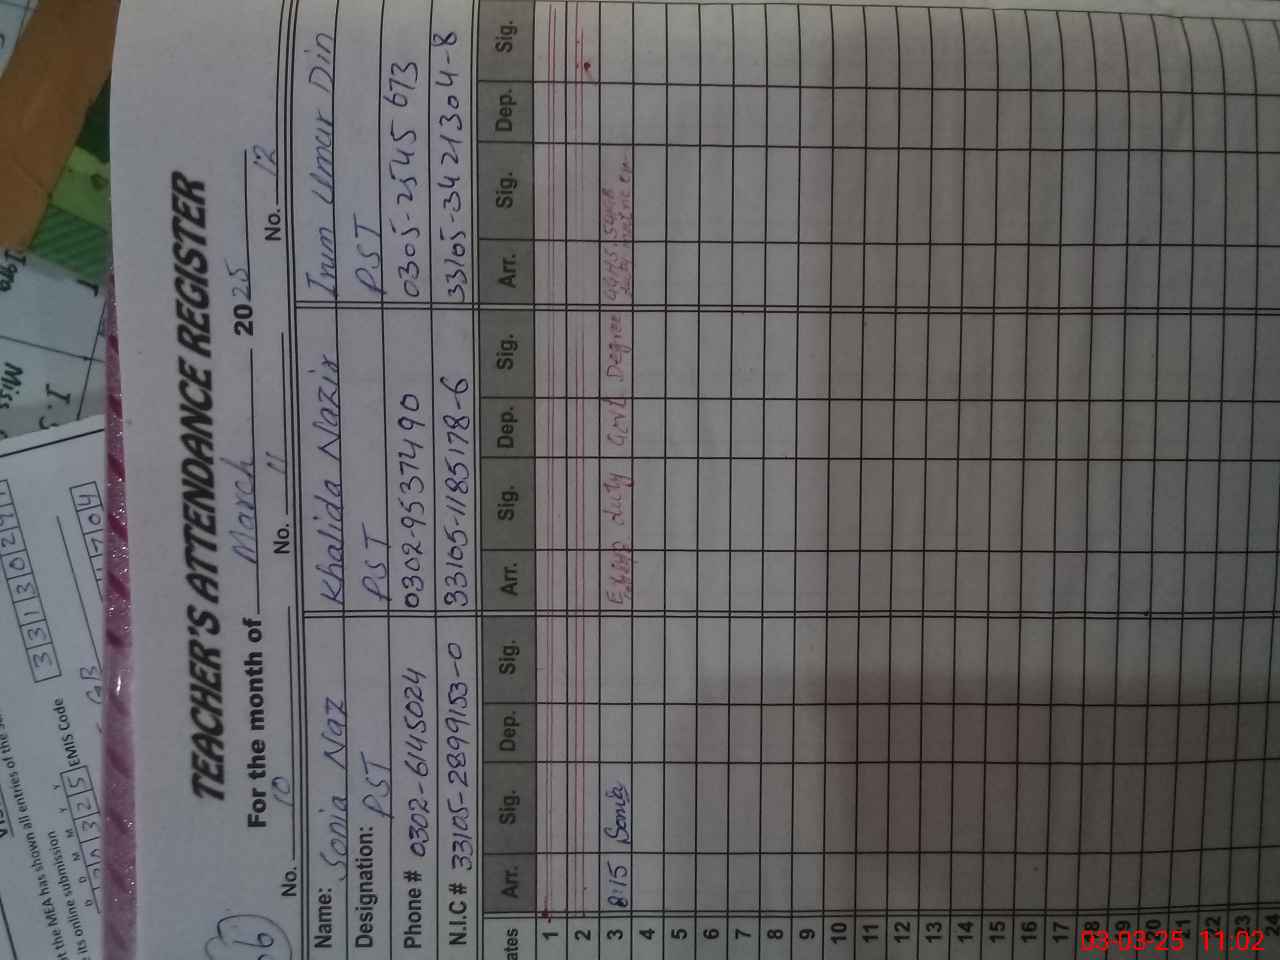 TEACHER'S ATTENDANCE REGISTER
For the month of March 2025
No. 10 No. 11 No. 12
Name: Sonia Naz Khalida Nazir Inum Umar Din
Designation: PST PST PST
Phone # 0302-6145024 0302-9537490 0305-2545673
N.I.C # 33105-2899153-0 33105-1185178-6 33105-3421304-8
ates Arr. Sig. Dep. Sig. Arr. Sig. Dep. Sig. Arr. Sig. Dep. Sig.
1
2
3 8:15 Sonia duty Govt. Degree
4
5
6
7
8
9
10
11
12
13
14
15
16
17
18
19
20
21
22
23
24
t the MEA has shown all entries of the
its online submission
D D M M Y Y
0325 EMIS Code 33130291
GB 1704
Miss
03-03-25 11:02